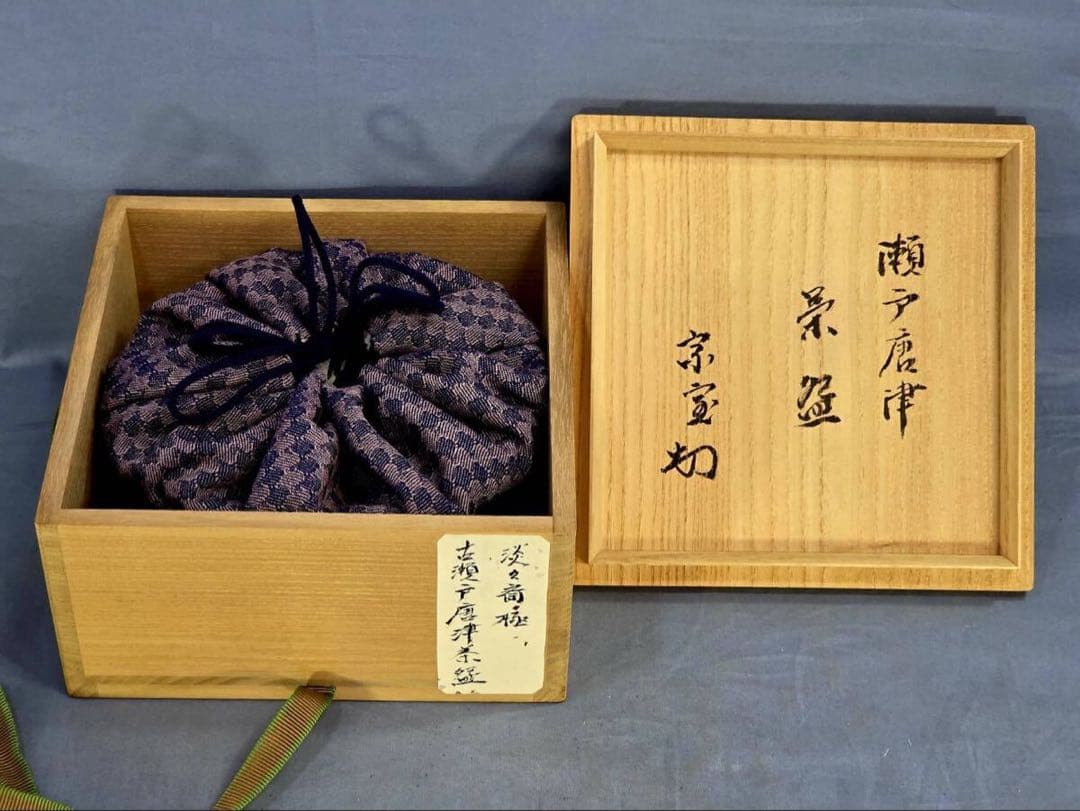 瀬戸唐津
茶盌
宗室
淡々斎極
古瀬戸唐津茶盌